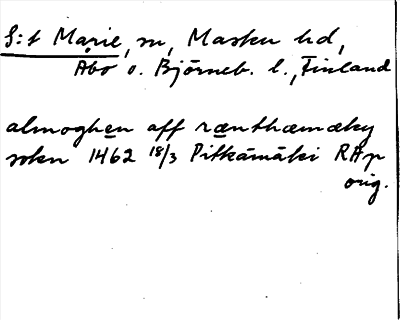 S:t Marie, sn, Masku hd,
Åbo o. Björneb. l., Finland
almoghen aff rænthæmæky
sokn 1462 18/3 Pitkämäki RAp
orig.